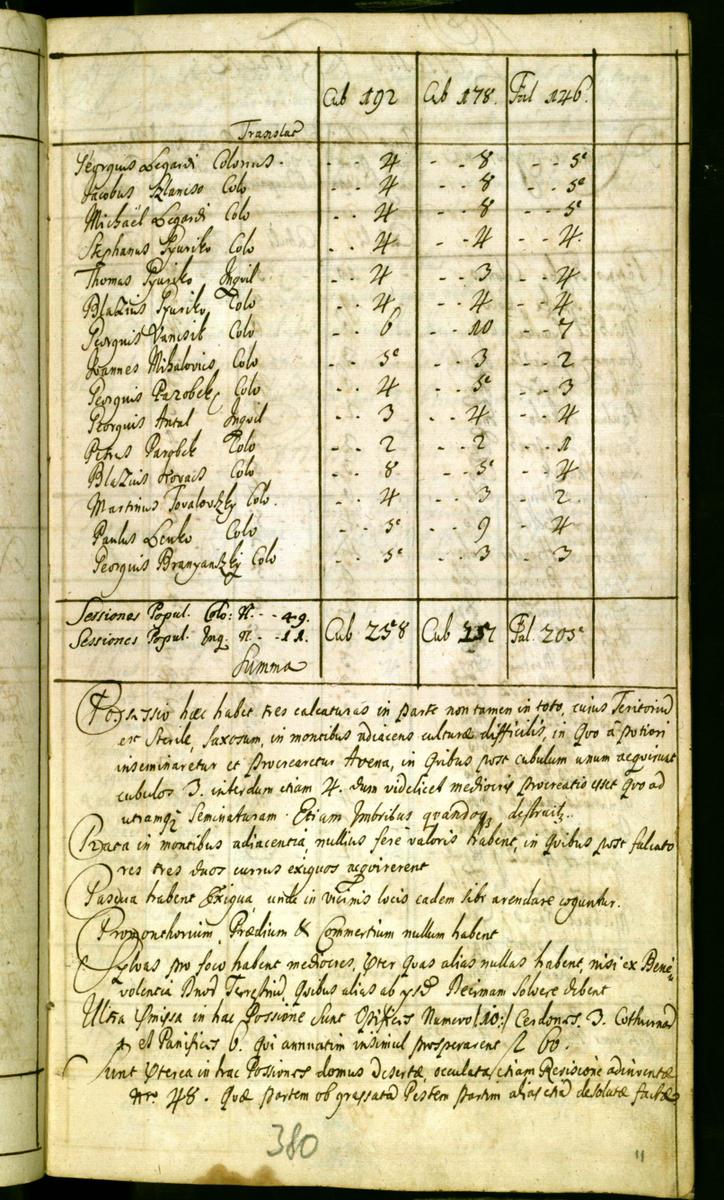 Cub 192 Cub 178. Fal 146.
Translat
Georgius Legardi Colonus. - - 4 - - 8 - - 5
Jacobus Klanczo Colo - - 4 - - 8 - - 5
Michaël Legardi Colo - - 4 - - 8 - - 5
Stephanus Gyuriko Colo - - 4 - - 4 - - 4.
Thomas Gyuriko Inquil - - 4 - - 3 - - 4
Blasius Gyuriko Colo - - 4 - - 4 - - 4
Georgius Vancsik Colo - - 6 - - 10 - - 7
Joannes Mihalovics Colo - - 5 - - 3 - - 2
Georgius Parobek Colo - - 4 - - 5 - - 3
Georgius Antal Inquil - - 3 - - 4 - - 4
Petrus Parobek Colo - - 2 - - 2 - - 1
Blasius Kovacs Colo - - 8 - - 5 - - 4
Martinus Tovalovszky Colo. - - 4 - - 3 - - 2.
Paulus Lenko Colo - - 5 - - 9 - - 4
Georgius Branyanszky Colo - - 5 - - 3 - - 3
Sessiones Popul. Colo: N. - - 49.
Sessiones Popul. Inq. N. - - 11. Cub 258 Cub 257 Fal. 205
Summa
Possessio hæc habet tres calcaturas in parte non tamen in toto, cuius Teritoriũ
est Sterile, saxosum, in montibus adiacens culturæ difficilis, in quo à potiori
inseminaretur et procrearetur Avena, in quibus post cubulum unum acquirunt
cubulos 3. interdum etiam 4. dum videlicet mediocris procreatio esset quo ad
utramq; Seminaturam. Etiam Imbribus quandoq; destruit.
Prata in montibus adiacentia, nullius fere valoris habent, in quibus post falcato
res tres duos currus exiguos acquirerent
Pascua habent Exigua, unde in vicinis locis eadem sibi arendare coguntur.
Promonthorium, Prædium & Commertium nullum habent
Sylvas pro foco habent mediocres, præter quas alias nullas habent, nisi ex Bene-
volentia Dnorũ Terrestriũ, quibus alias ab ysd Decimam solvere debent
Ultra præmissa in hac Possione sunt Opifices Numero (10:) Cerdones. 3. Cothurnar
1. et Panifices 6. qui annuatim insimul prosperarent f 60.
Sunt præterea in hac Possiones domus Desertæ, occulatas etiam Revisione adinventæ
Nro 48. Quæ partem ob grassatã Pestem partim alias etiã desolatæ factæ
380
11